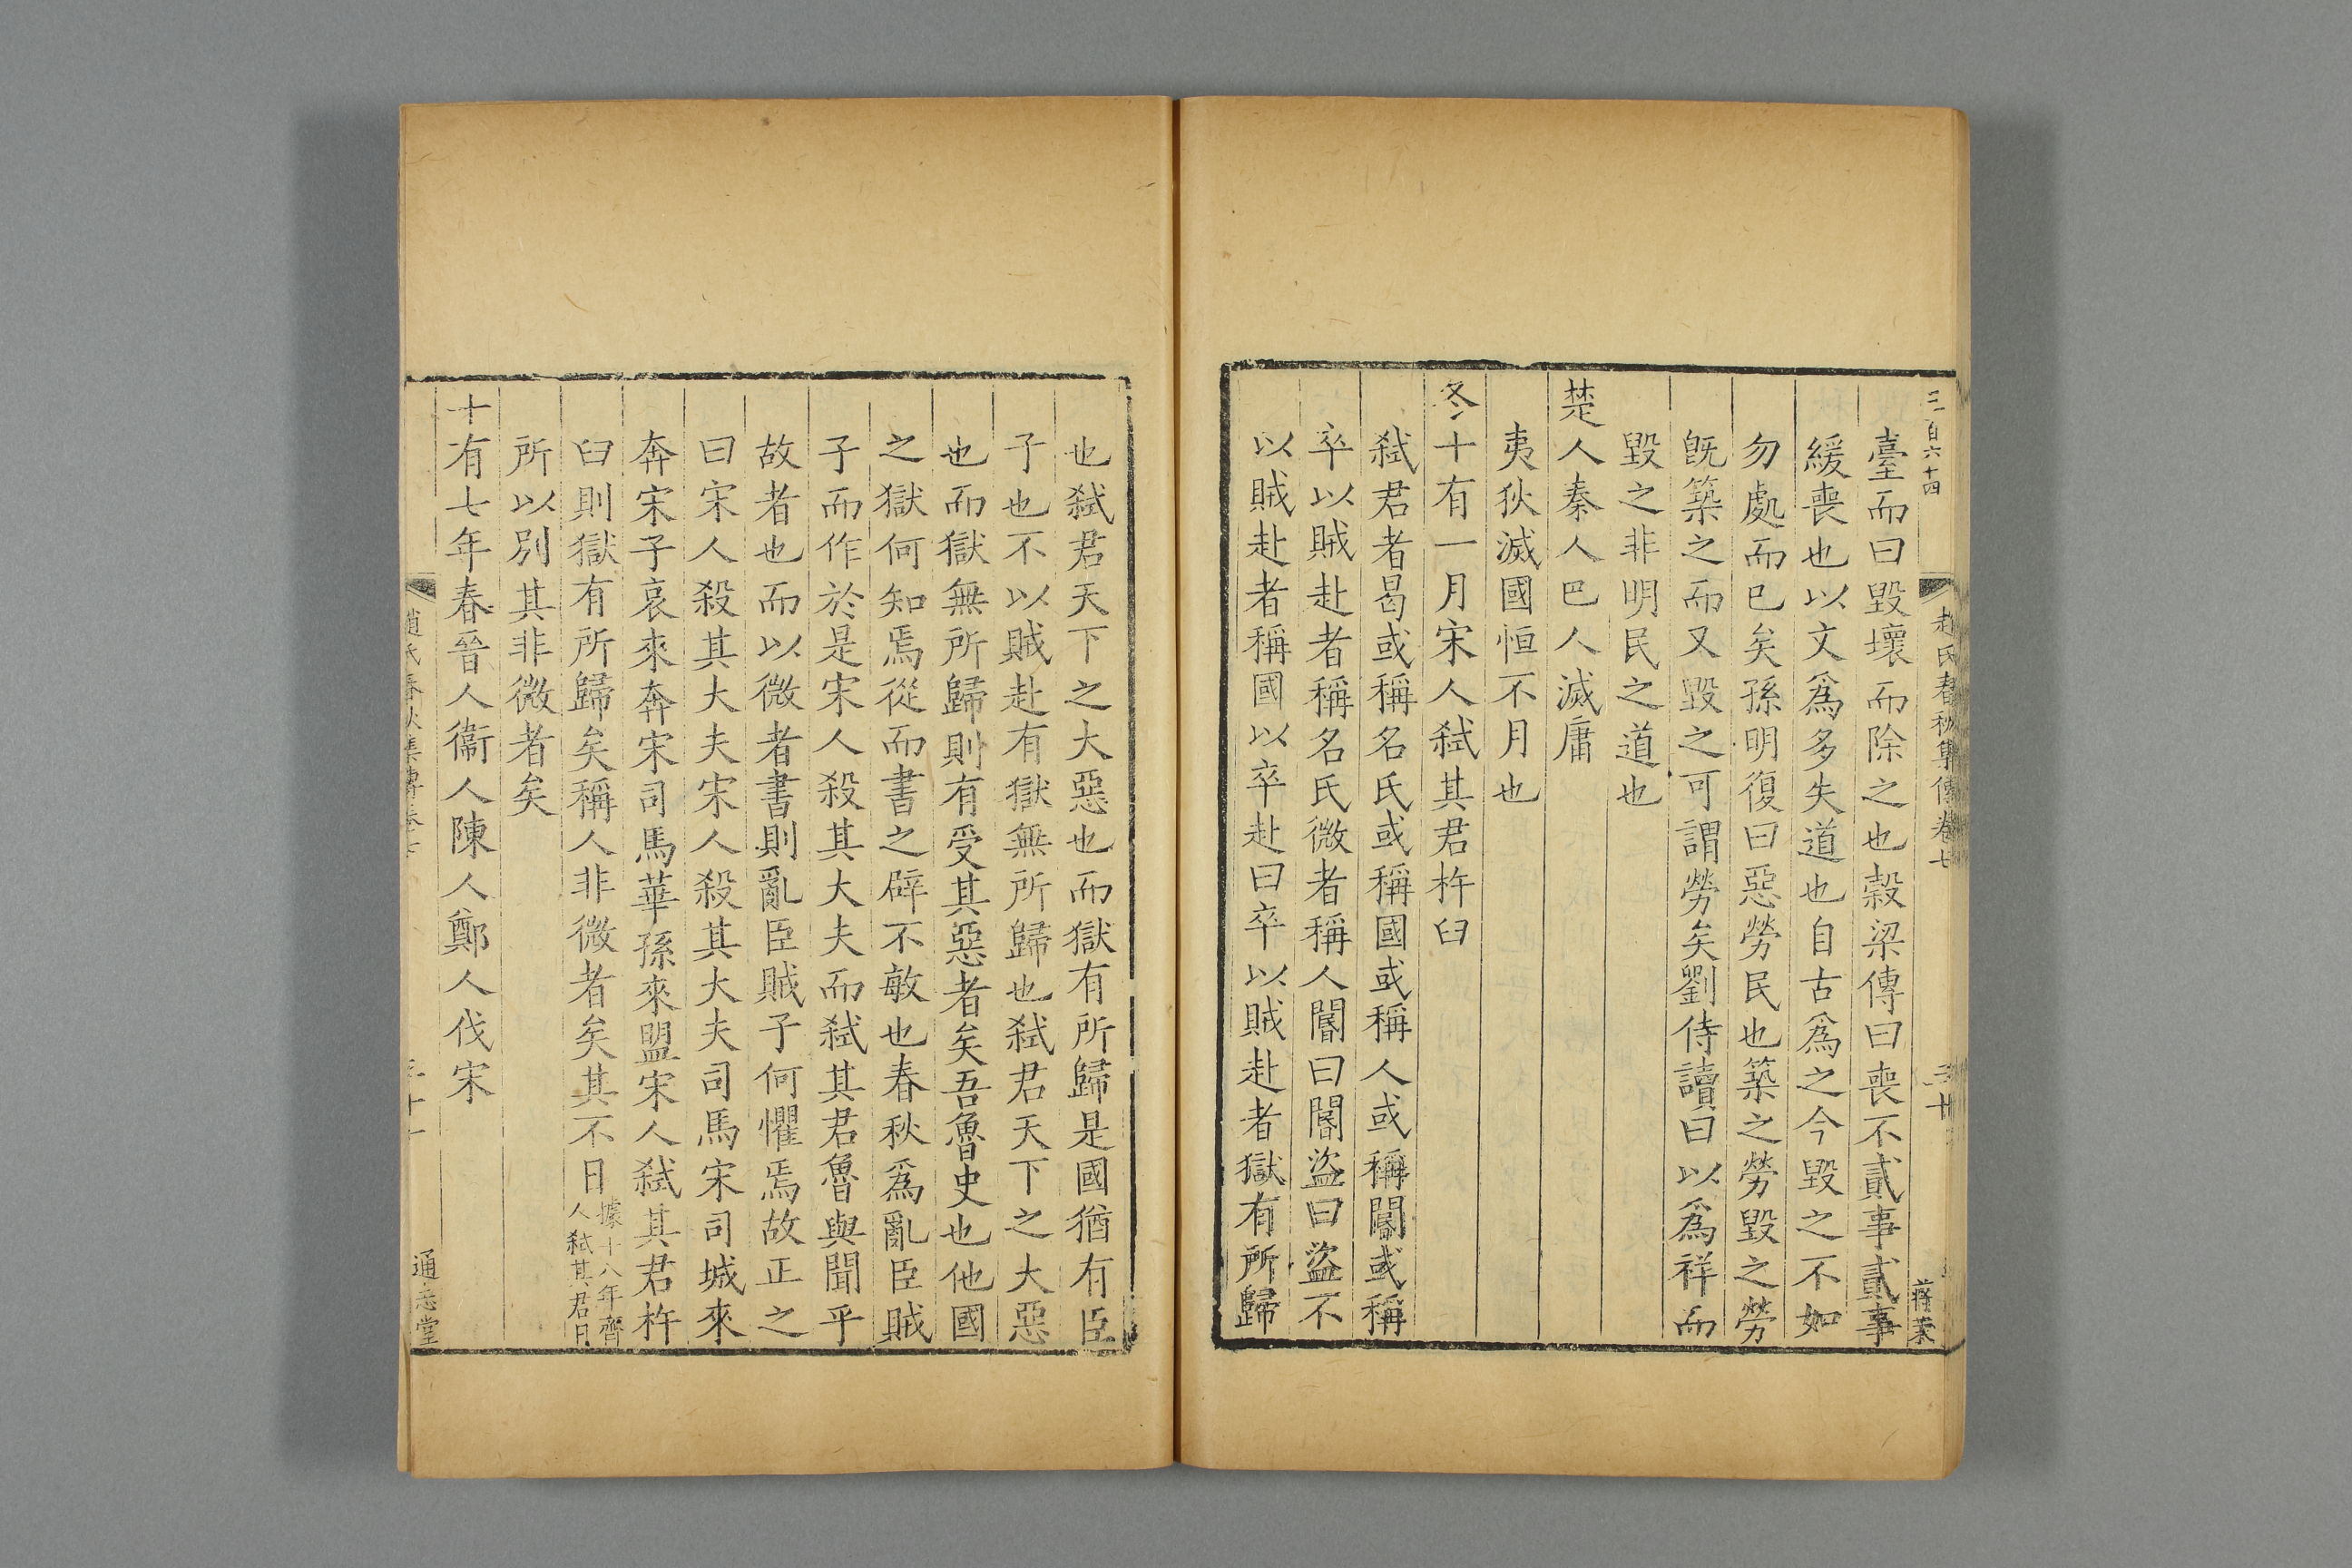 三百六十四
趙氏春秋集傳卷七
蔣榮
臺而曰毀壞而除之也榖梁傳曰喪不貳事貳事
緩喪也以文爲多失道也自古爲之今毀之不如
勿處而已矣孫明復曰惡勞民也築之勞毀之勞
旣築之而又毀之可謂勞矣劉侍讀曰以爲祥而
毀之非明民之道也
楚人秦人巴人滅庸
夷狄滅國恒不月也
冬十有一月宋人弑其君杵臼
弑君者曷或稱名氏或稱國或稱人或稱閽或稱
卒以賊赴者稱名氏微者稱人閽曰閽盜曰盜不
以賊赴者稱國以卒赴曰卒以賊赴者獄有所歸
也弑君天下之大惡也而獄有所歸是國猶有臣
子也不以賊赴有獄無所歸也弑君天下之大惡
也而獄無所歸則有受其惡者矣吾魯史也他國
之獄何知焉從而書之辟不敏也春秋爲亂臣賊
子而作於是宋人殺其大夫而弑其君魯與聞乎
故者也而以微者書則亂臣賊子何懼焉故正之
曰宋人殺其大夫宋人殺其大夫司馬宋司城來
奔宋子哀來奔宋司馬華孫來盟宋人弑其君杵
臼則獄有所歸矣稱人非微者矣其不日據十八年齊
人弑其君日
所以別其非微者矣
十有七年春晉人衞人陳人鄭人伐宋
趙氏春秋集傳卷七
三十一
通志堂